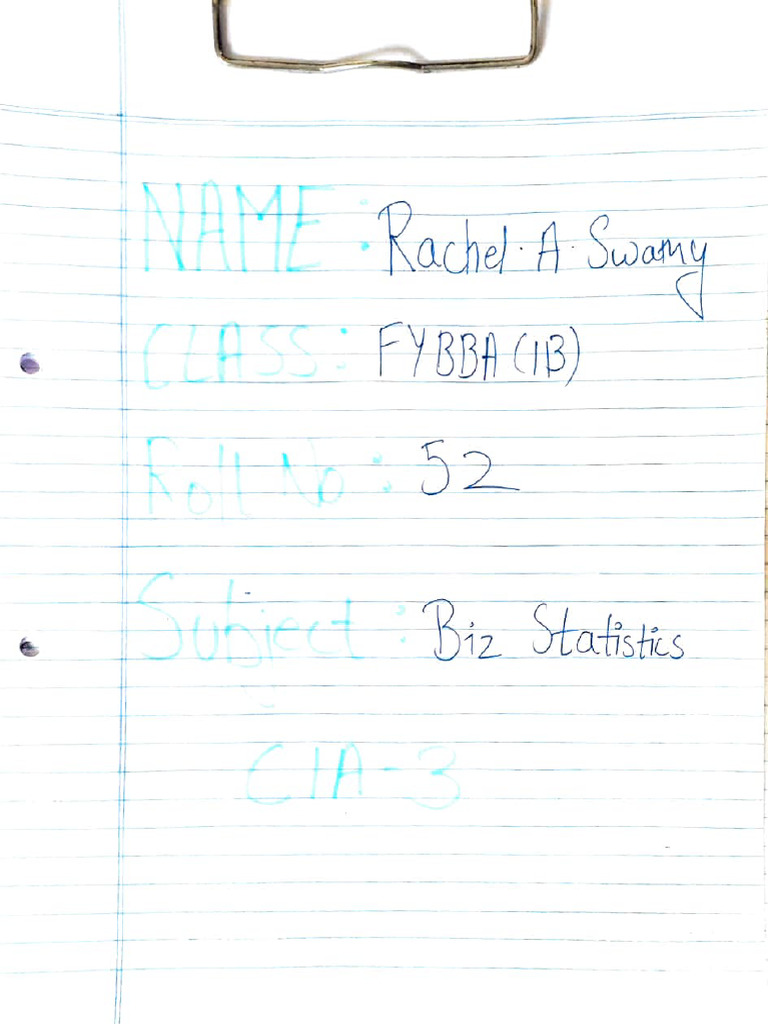 NAME : Rachel . A . Swamy
CLASS : FYBBA (IB)
Roll No : 52
Subject : Biz Statistics
CIA - 3